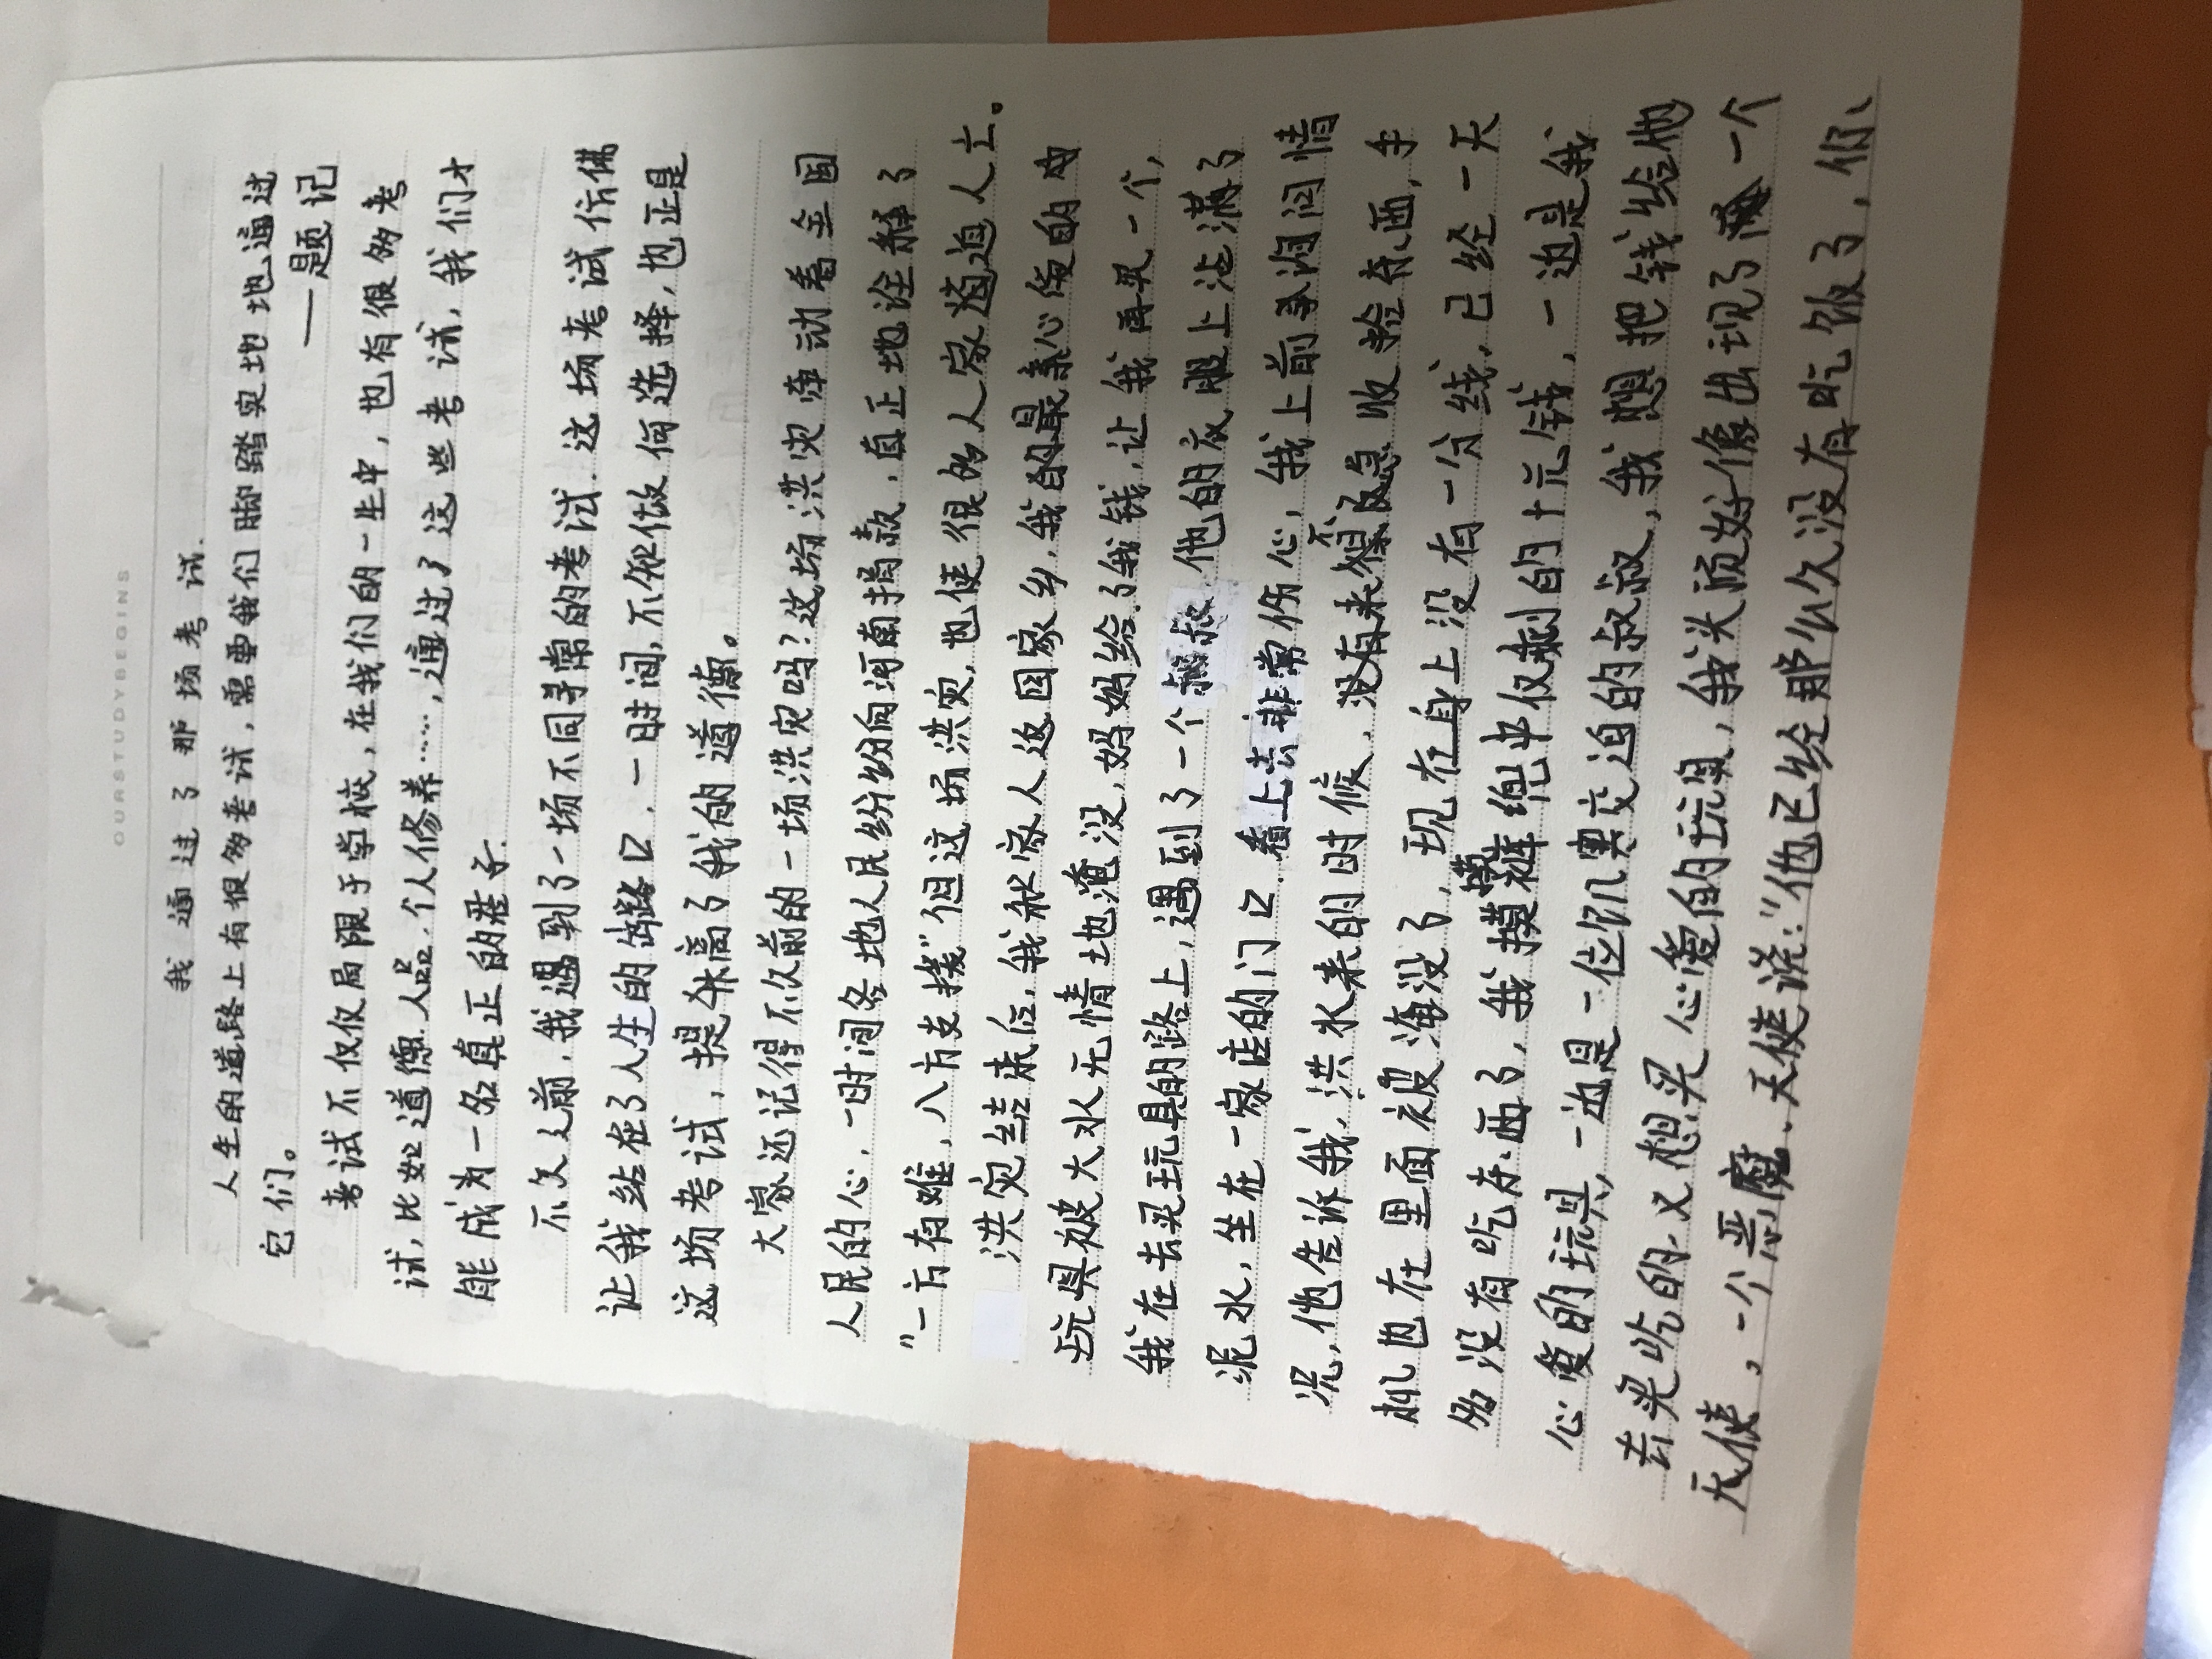 OURSTUDYBEGINS
我通过了那场考试.
人生的道路上有很多考试,需要我们脚踏实地地通过
它们。
——题记
考试不仅仅局限于学校,在我们的一生中,也有很多考
试,比如道德.人品.个人修养……,通过了这些考试,我们才
能成为一名真正的君子.
不久之前,我遇到了一场不同寻常的考试.这场考试仿佛
让我站在了人生的岔路口,一时间,不知做何选择,也正是
这场考试,提升离了我的道德。
大家还记得不久前的一场洪灾吗?这场洪灾牵动着全国
人民的心,一时间各地人民纷纷向河南捐款,真正地诠释了
"一方有难,八方支援"但这场洪灾,也使很多人家道迫人亡。
洪灾结束后,我和家人返回家乡,我的最亲心爱的的
玩具被大水无情地淹没,妈妈给了我钱,让我再买一个,
我在去买玩具的路上,遇到了一个叔叔.他的衣服上沾满了
泥水,坐在一家店的门口.看上去非常伤心,我上前询问情
况,他告诉我,洪水来的时候,没有来得及收拾东西,手
机也在里面被淹没了,现在身上没有一分钱,已经一天
多没有吃东西了,我摸裤兜中仅剩的十元钱,一边是我
心爱的玩具,一边是一位饥寒交迫的叔叔,我想把钱给他
去买吃的.又想买心爱的玩具,我头顶好像出现了一个
天使,一个恶魔.天使说:"他已经那么久没有吃饭了,你、